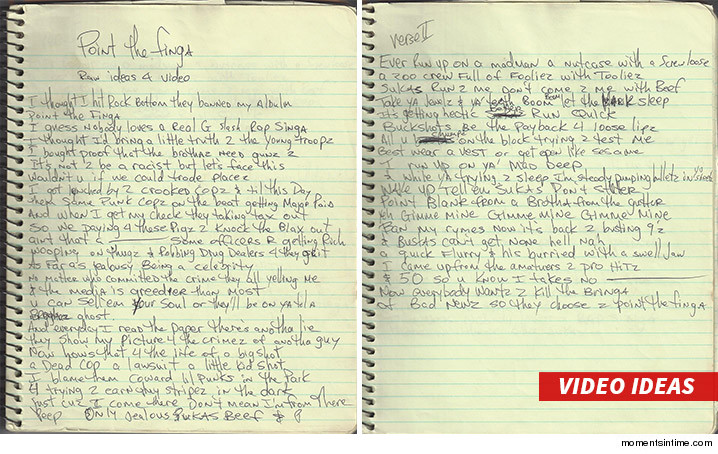 Point the Finga
Raw ideas 4 video
I thought I hit Rock Bottom they banned my Album
Point the Finga
I guess nobody loves a Real G slash Rap Singa
I thought I'd bring a little truth 2 the young troopz
I bought proof that the brothaz need gunz 2
It's not 2 be a racist but let's face this
Wouldn't u if we could trade placez
I got lynched by 2 crooked copz & til this Day
them same Punk copz on the beat getting Major Paid
And when I get my check they taking tax out
So we paying 4 these Pigz 2 knock the Blax out
aint that a Some officers R getting Rich
wooping on thugz & Robbing Drug Dealers 4 they
As Far as jealousy Being a celebrity
no matter who committed the crime they all yelling Me
& the media is greedier than most
u can sell em your Soul or they'll be on ya
ghost
And everyday I read the Paper there's anotha lie
they show my Picture 4 the crimez of anotha guy
Now howz that 4 the life of a big shot
a Dead cop a lawsuit a little kid shot
I blame them coward lil Punks in the Park
4 trying 2 earn they stripez in the dark
Just cuz I come there Don't mean I'm from There
Peep Only Jealous Sukas Beef &
Verse II
Ever Run up on a madman a nutcase with a Screw loose
a zoo crew Full of Fooliez with Tooliez
Sukas Run 2 me Don't come 2 me with Beef
Take ya Jewlz & ya Boom let the sleep
Its getting hectic Run Quick
Buckshots Be the Payback 4 loose lipz
All u on the block trying 2 test Me
Best wear a vest or get open like sesame
I run up on ya Mob Deep
& While ya trying 2 sleep I'm steady pumping bulletz in ya
Wake up Tell em Sukas Don't
Point Blank from a Brotha from the gutter
Gimme Mine Gimme Mine Gimme Mine
Ban my rymes Now its back 2 busting 9z
& Buskas can't get None hell Nah
a quick Flurry & his burried with a swell Jaw
I came up from the amatuers 2 pro Hitz
& 50 so u know I takes no
Now everybody Wantz 2 kill the Bringa
of Bad Newz so they choose 2 point the finga
VIDEO IDEAS
momentsintime.com